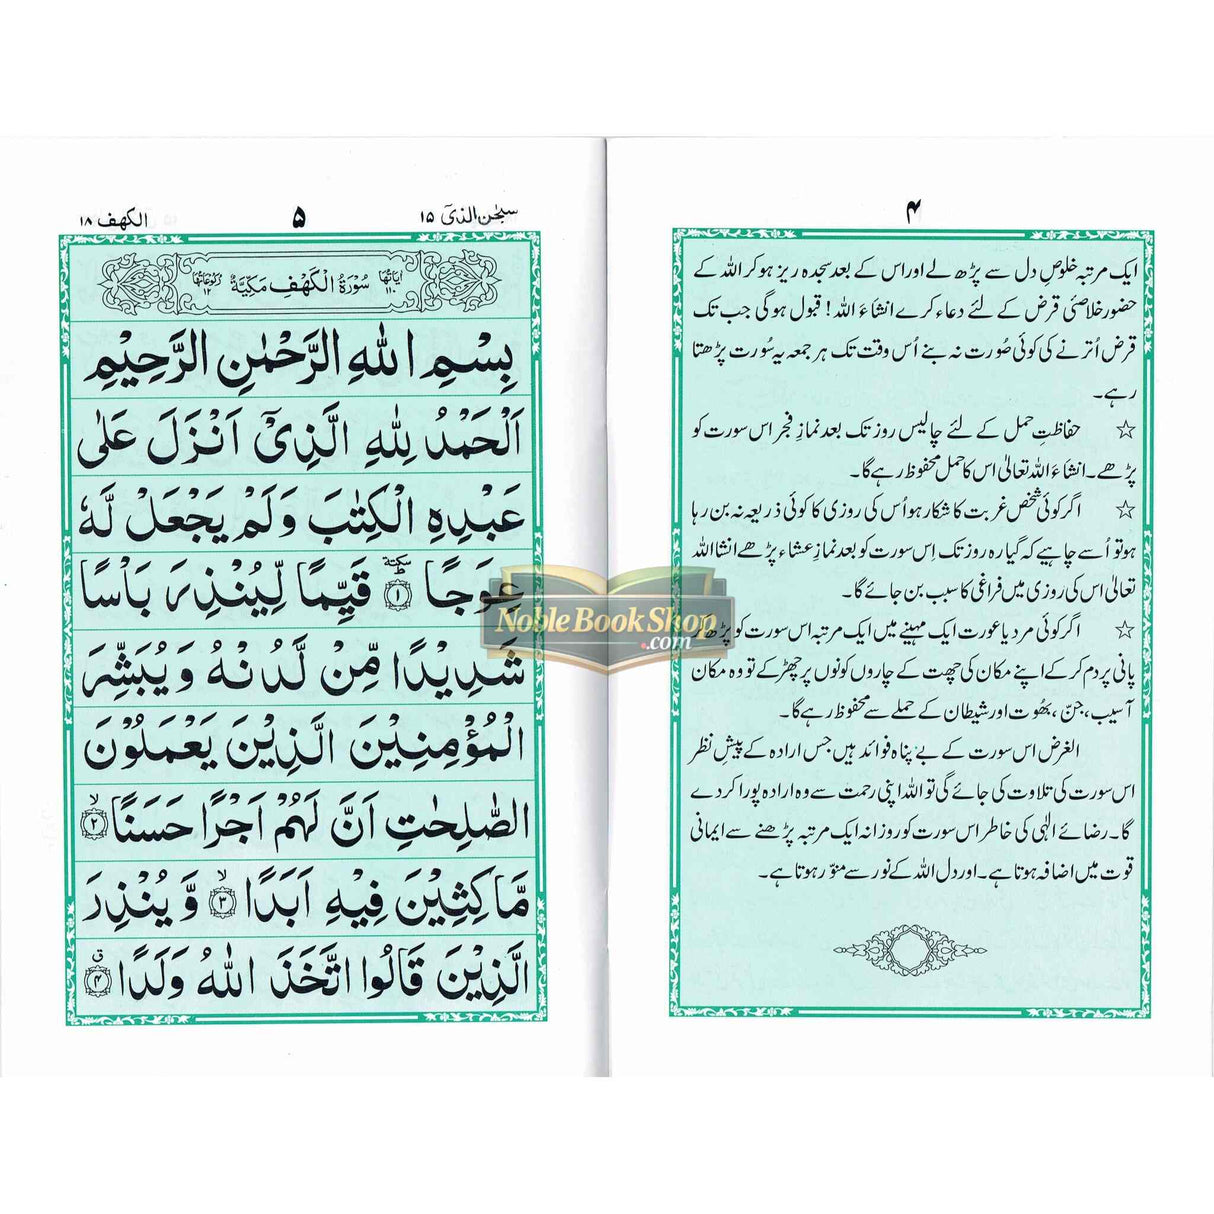 ۴
ایک مرتبہ خلوصِ دل سے پڑھ لے اور اس کے بعد سجدہ ریز ہو کر اللہ کے
حضور خلاصئی قرض کے لئے دعاء کرے انشاءَ اللہ! قبول ہوگی جب تک
قرض اُترنے کی کوئی صُورت نہ بنے اُس وقت تک ہر جمعہ یہ سُورت پڑھتا
رہے۔
☆ حفاظتِ حمل کے لئے چالیس روز تک بعد نمازِ فجر اس سورت کو
پڑھے۔ انشاءَ اللہ تعالیٰ اس کا حمل محفوظ رہے گا۔
☆ اگر کوئی شخص غربت کا شکار ہو اُس کی روزی کا کوئی ذریعہ نہ بن رہا
ہو تو اُسے چاہیے کہ گیارہ روز تک اِس سورت کو بعد نمازِ عشاء پڑھے انشا اللہ
تعالیٰ اس کی روزی میں فراغی کا سبب بن جائے گا۔
☆ اگر کوئی مرد یا عورت ایک مہینے میں ایک مرتبہ اس سورت کو پڑھ کر
پانی پر دم کر کے اپنے مکان کی چھت کے چاروں کونوں پر چھڑکے تو وہ مکان
آسیب، جنّ، بھُوت اور شیطان کے حملے سے محفوظ رہے گا۔
الغرض اس سورت کے بے پناہ فوائد ہیں جس ارادہ کے پیشِ نظر
اس سورت کی تلاوت کی جائے گی تو اللہ اپنی رحمت سے وہ ارادہ پورا کر دے
گا۔ رضائے الٰہی کی خاطر اس سورت کو روزانہ ایک مرتبہ پڑھنے سے ایمانی
قوت میں اضافہ ہوتا ہے۔ اور دل اللہ کے نور سے منوّر ہوتا ہے۔
سبحٰن الذیٓ ۱۵ ۵ الکھف ۱۸
اٰیاتُھا ۱۱۰ سُوْرَۃُ الْکَھْفِ مَکِّیَّۃٌ رُکُوْعَاتُھَا ۱۲
بِسْمِ اللّٰہِ الرَّحْمٰنِ الرَّحِیْمِ
اَلْحَمْدُ لِلّٰہِ الَّذِیْٓ اَنْزَلَ عَلٰی
عَبْدِہِ الْکِتٰبَ وَلَمْ یَجْعَلْ لَّہٗ
عِوَجًا ﴿۱﴾ سکتۃ قَیِّمًا لِّیُنْذِرَ بَاْسًا
شَدِیْدًا مِّنْ لَّدُنْہُ وَیُبَشِّرَ
الْمُؤْمِنِیْنَ الَّذِیْنَ یَعْمَلُوْنَ
الصّٰلِحٰتِ اَنَّ لَھُمْ اَجْرًا حَسَنًا ﴿۲﴾ لا
مَّاکِثِیْنَ فِیْہِ اَبَدًا ﴿۳﴾ لا وَّیُنْذِرَ
الَّذِیْنَ قَالُوا اتَّخَذَ اللّٰہُ وَلَدًا ﴿۴﴾ ق
Noble Book Shop
.com